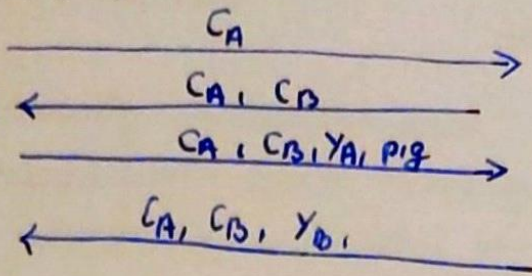 CA
CA, CB
CA, CB, YA, p, g
CA, CB, YB,